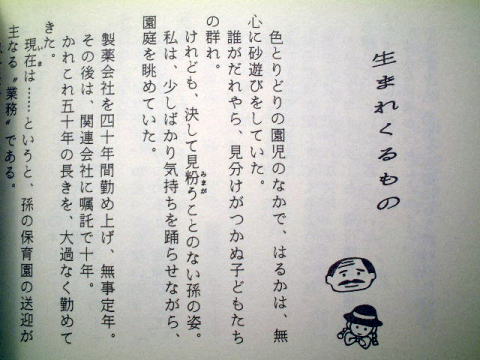 生まれくるもの
色とりどりの園児のなかで、はるかは、無
心に砂遊びをしていた。
誰がだれやら、見分けがつかぬ子どもたち
の群れ。
けれども、決して見粉うことのない孫の姿。
みまが
私は、少しばかり気持ちを踊らせながら、
園庭を眺めていた。
製薬会社を四十年間勤め上げ、無事定年。
その後は、関連会社に嘱託で十年。
かれこれ五十年の長きを、大過なく勤めて
きた。
現在は……というと、孫の保育園の送迎が
いま
主なる〝業務〟である。